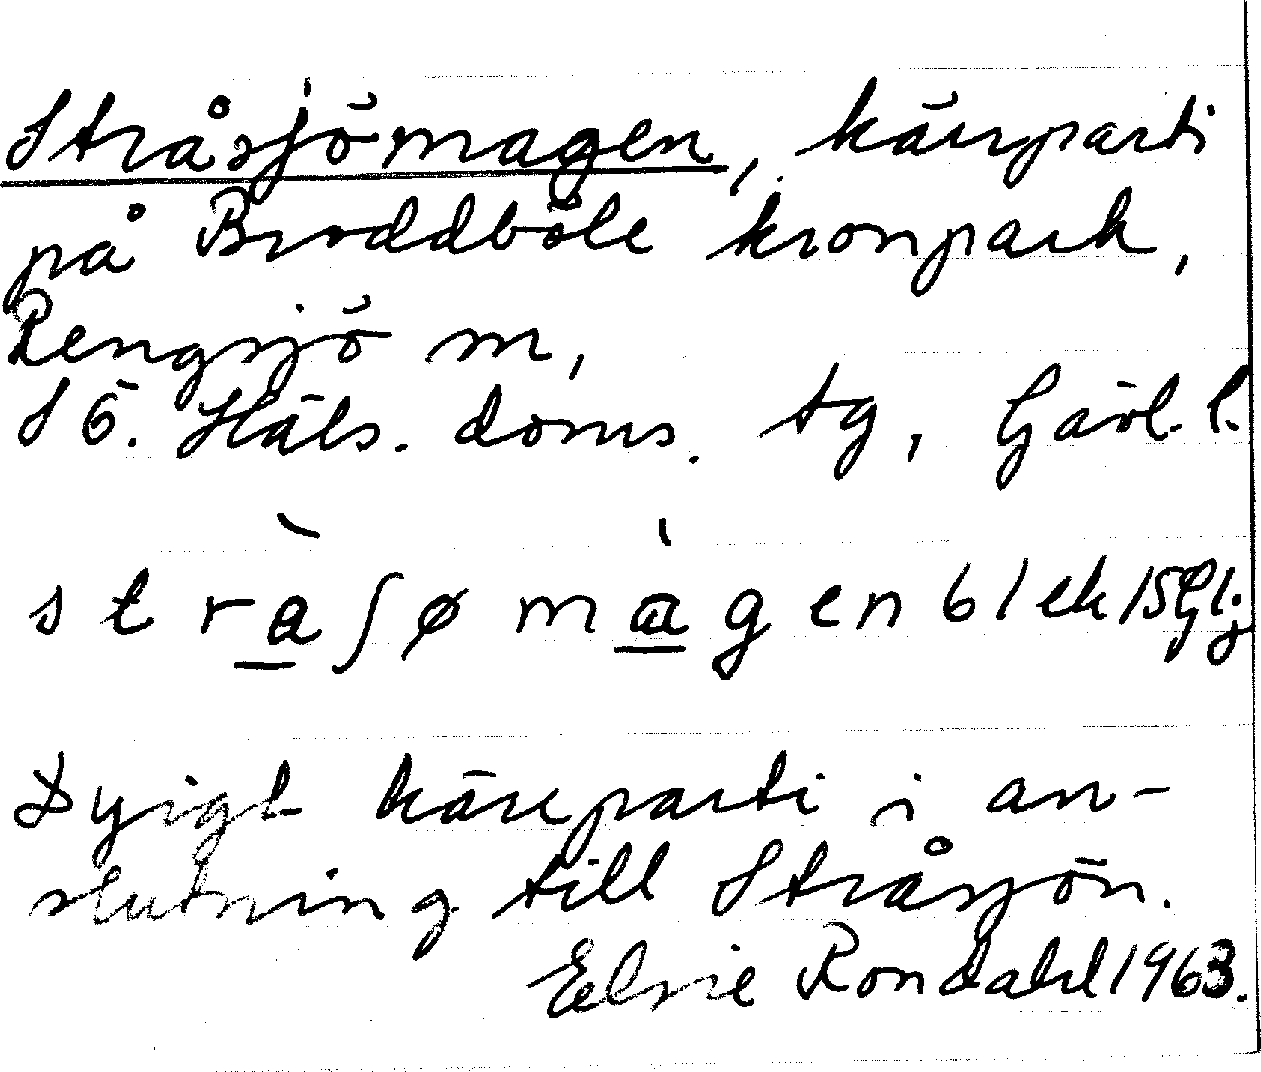 Stråsjömagen, kärrparti
på Broddböle kronpark,
Rengsjö m,
S Ö. Häls. doms. tg, Gävl. l.
stràʃø màgen 6 l ek
Dyigt kärrparti i an-
slutning till Stråsjön.
Elsie Rondahl 1963.